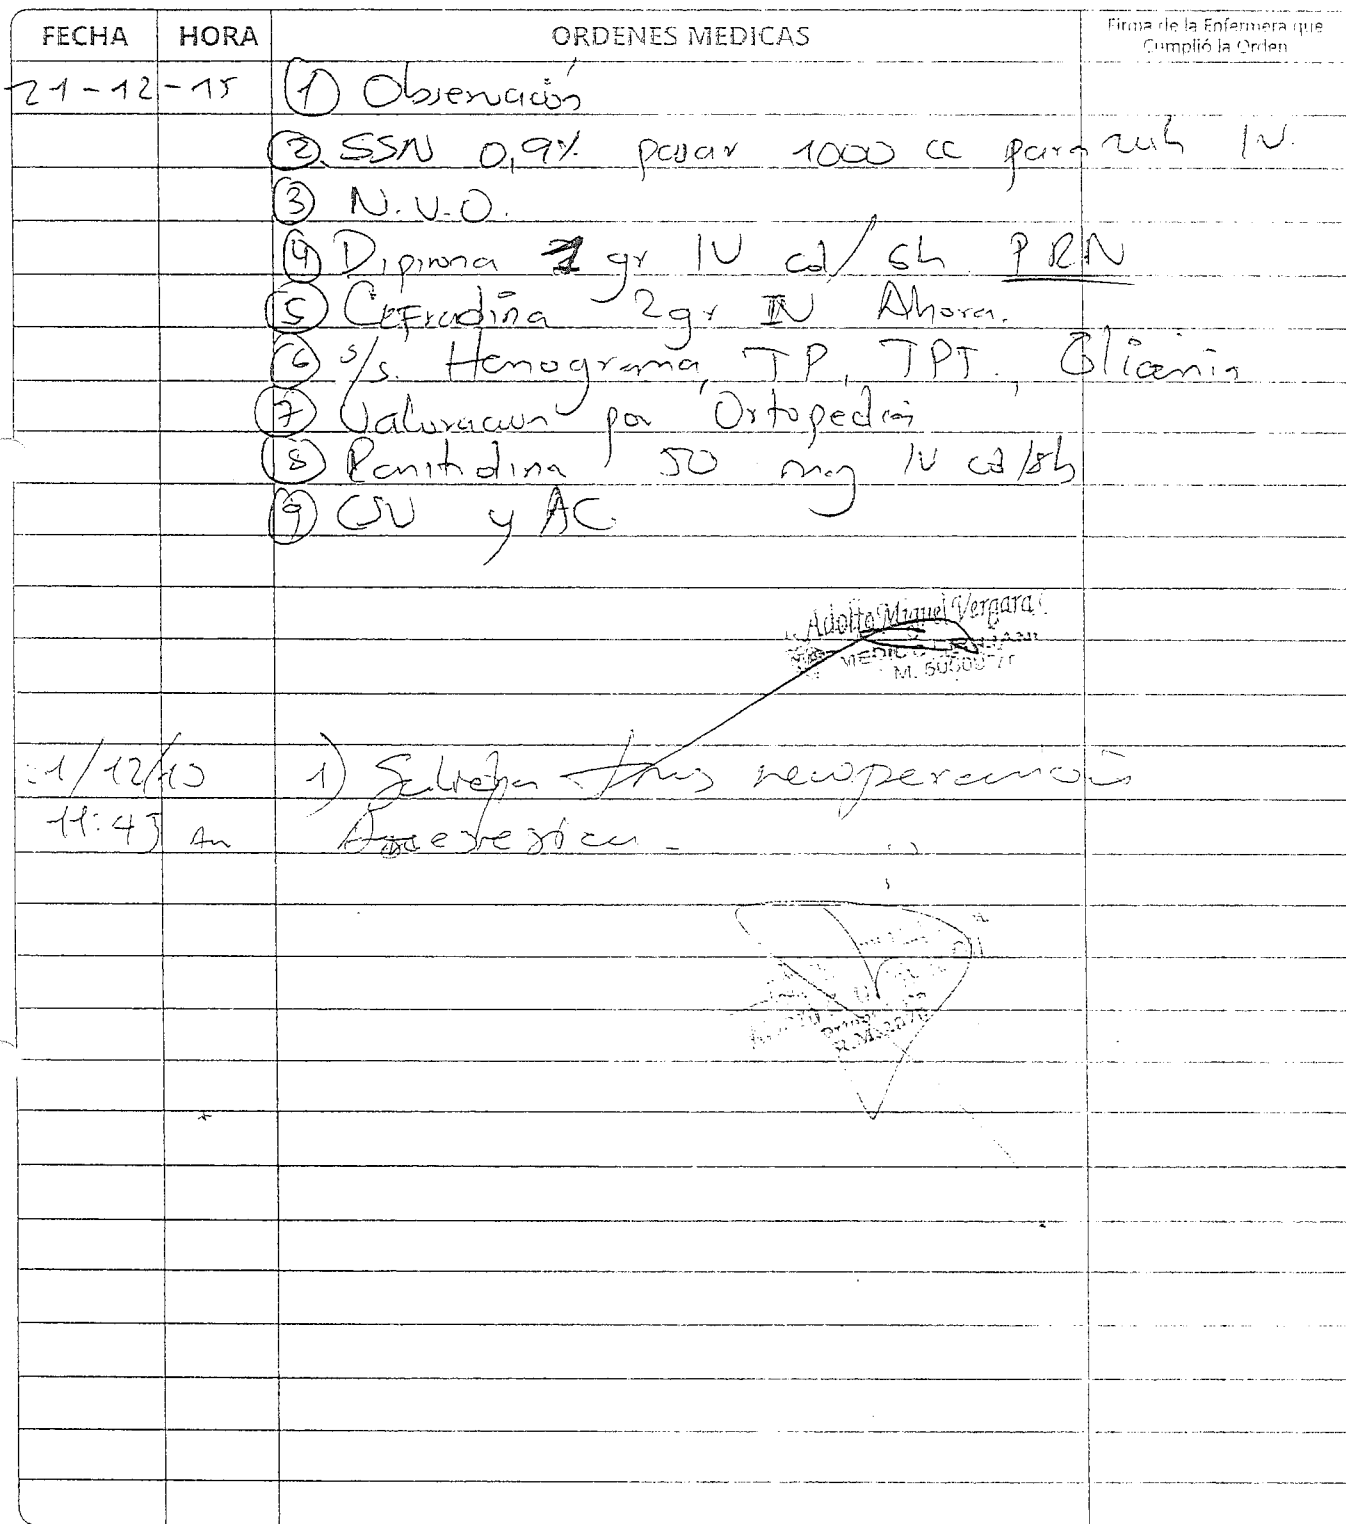 FECHA HORA ORDENES MEDICAS Firma de la Enfermera que
Cumplió la Orden
21-12-15 1 Observación
2 SSN 0,9% pasar 1000 cc para IV.
3 N.V.O.
4 Dipirona 1 gr IV cd/ 6h PRN
5 Cefradina 2gr IV Ahora.
6 s/s. Hemograma, TP, TPT., Glicemia
7 Valoracion por Ortopedia
8 Ranitidina 50 mg IV cd/8h
9 CSV y AC
Adolfo Miguel Vergara
MEDICO
M.
1/12/15 1) tras recuperación
11:43 Am Anestesica.
R.M.